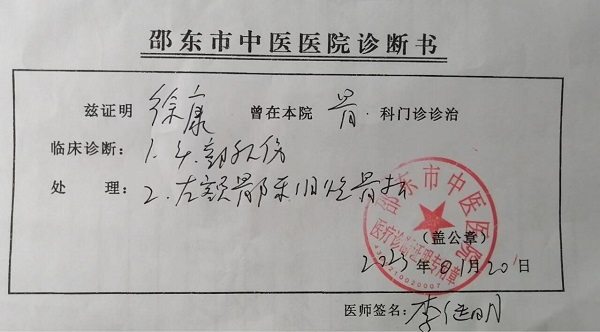 邵东市中医医院诊断书
兹证明 徐康 曾在本院 骨 科门诊诊治
临床诊断： 1. 头部外伤
处 理： 2. 左额
邵东市中医医院
医疗诊断证明专用章
（盖公章）
2023 年 01 月 20 日
医师签名：